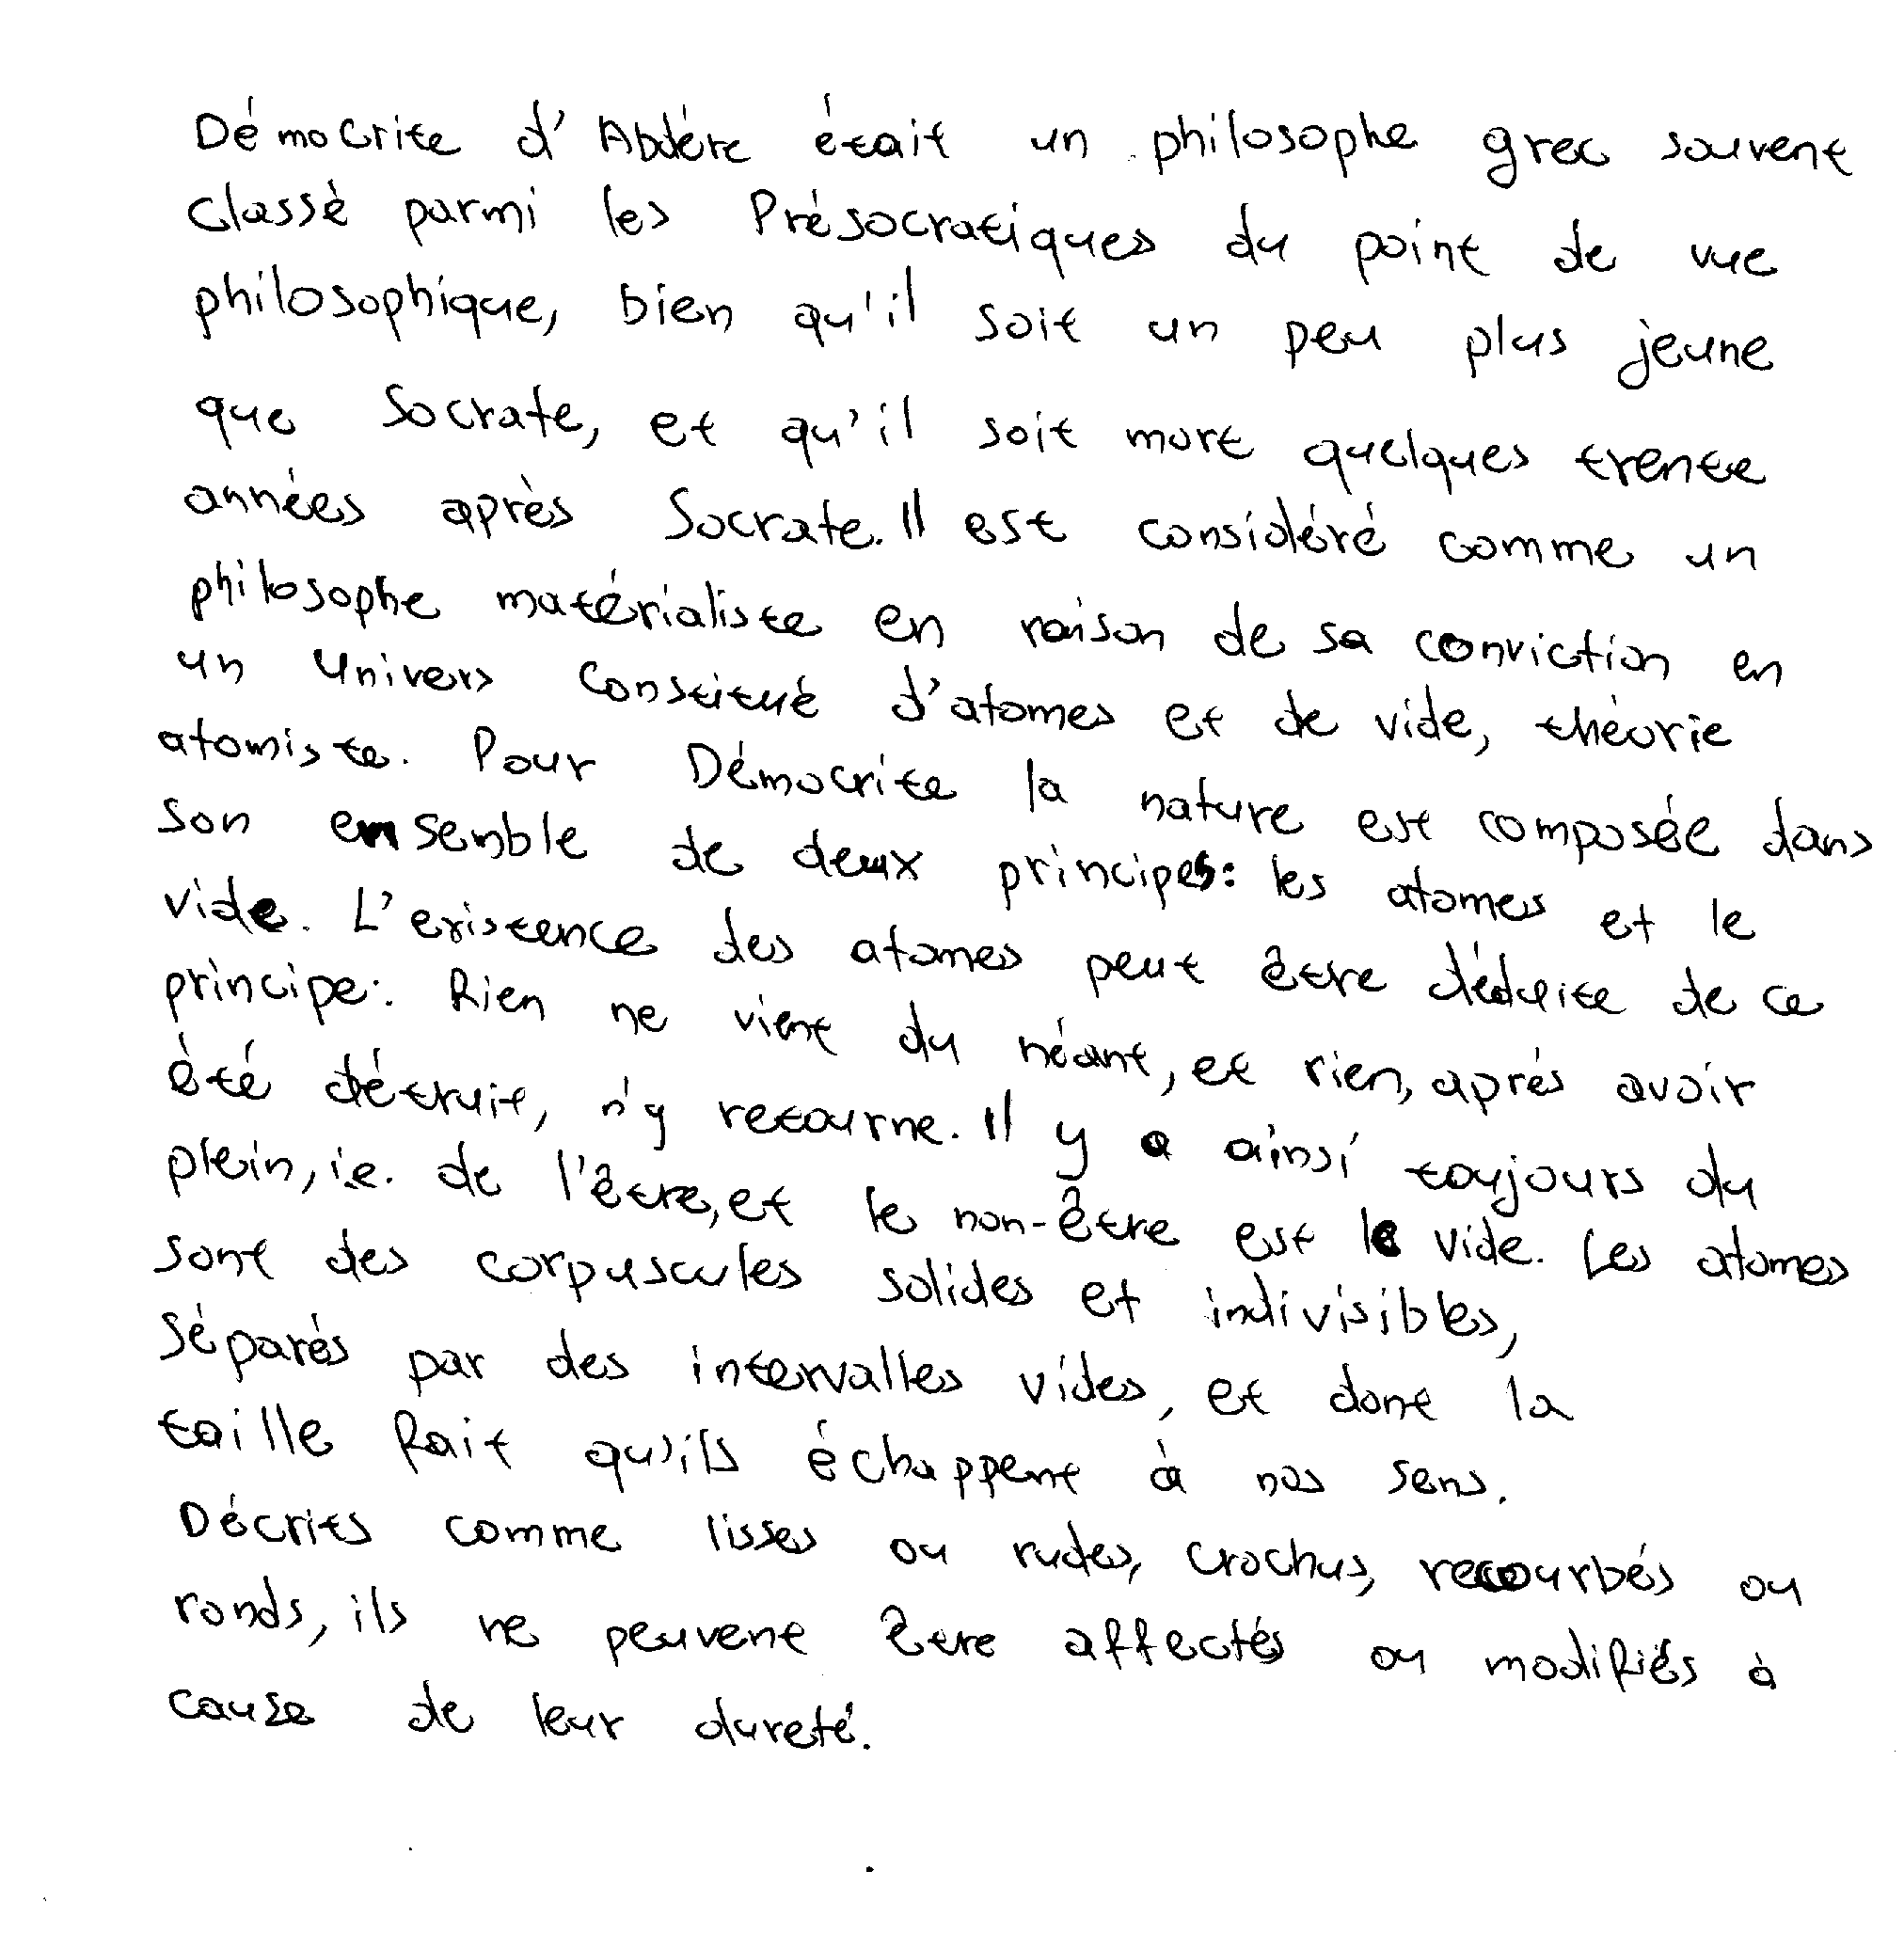 Démocrite d'Abdère était un philosophe grec souvent
classé parmi les Présocratiques du point de vue
philosophique, bien qu'il soit un peu plus jeune
que Socrate, et qu'il soit mort quelques trente
années après Socrate. Il est considéré comme un
philosophe matérialiste en raison de sa conviction en
un Univers constitué d'atomes et de vide, théorie
atomiste. Pour Démocrite la nature est composée dans
son ensemble de deux principes: les atomes et le
vide. L'existence des atomes peut être déduite de ce
principe: Rien ne vient du néant, et rien, après avoir
été détruit, n'y retourne. Il y a ainsi toujours du
plein, i.e. de l'être, et le non-être est le vide. Les atomes
sont des corpuscules solides et indivisibles,
séparés par des intervalles vides, et dont la
taille fait qu'ils échappent à nos sens.
Décrits comme lisses ou rudes, crochus, recourbés ou
ronds, ils ne peuvent être affectés ou modifiés à
cause de leur dureté.